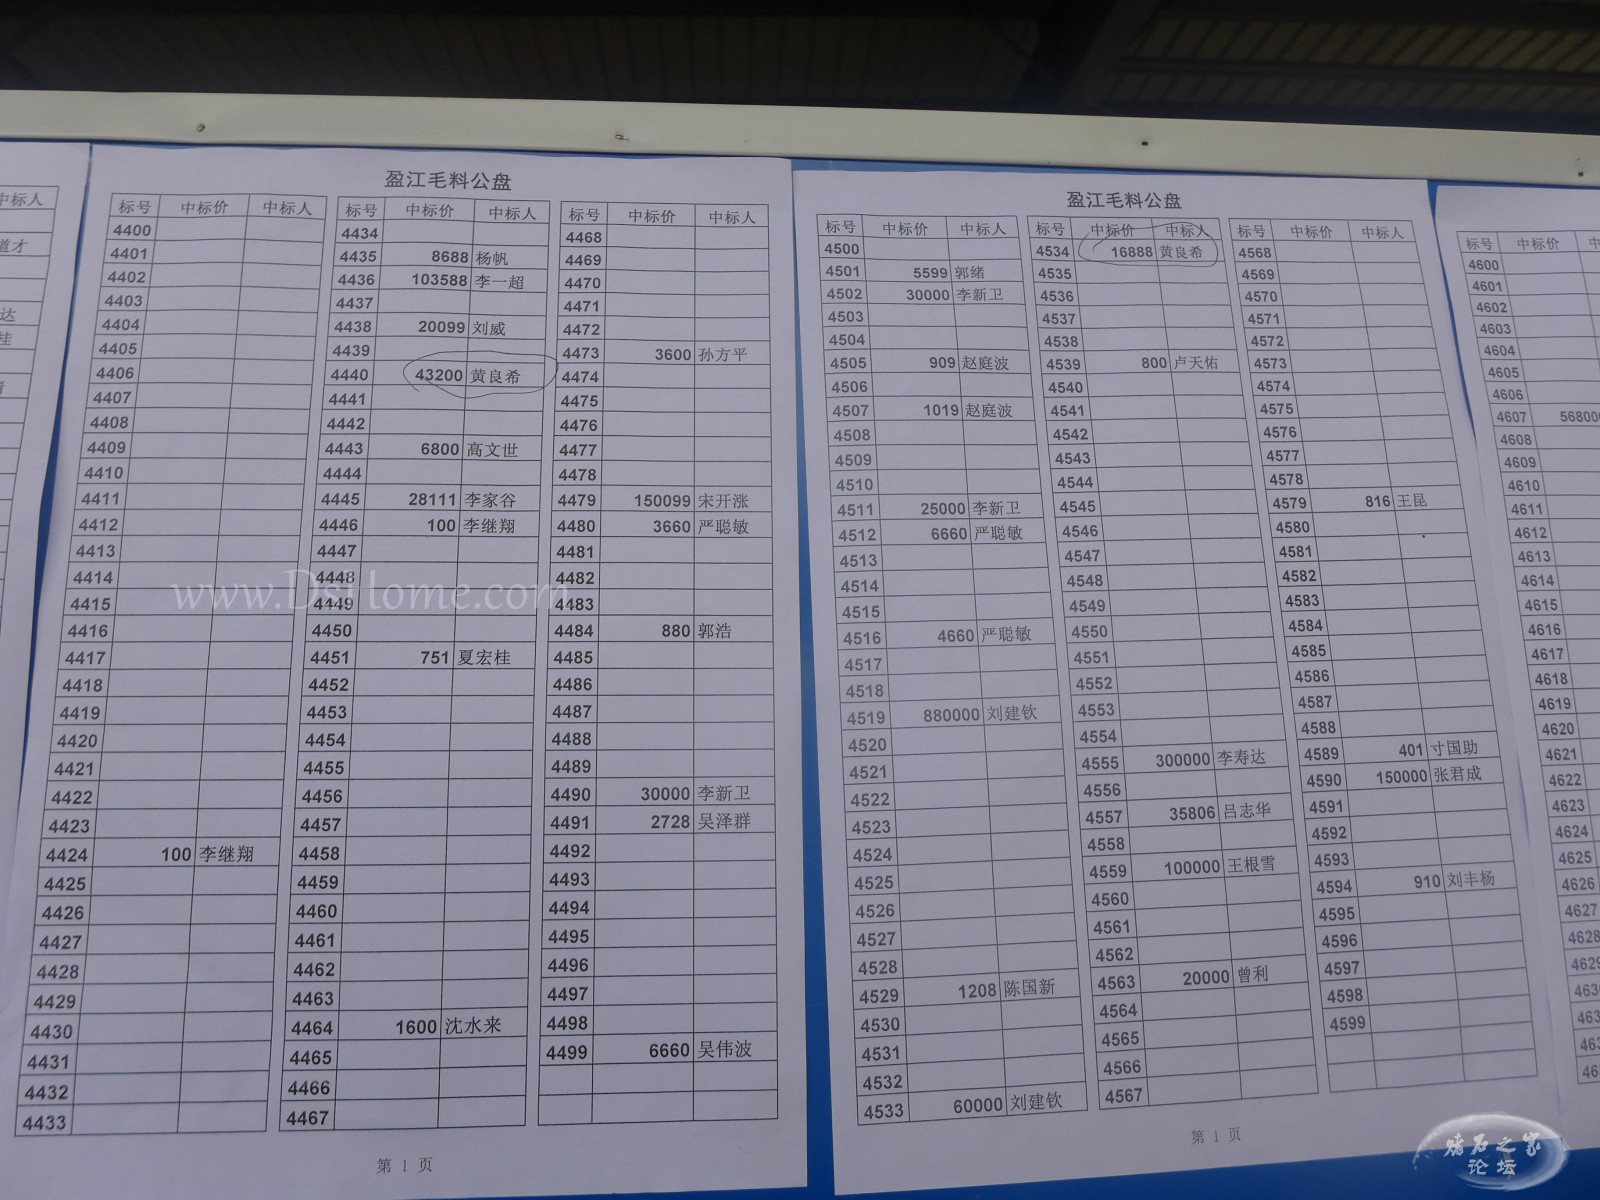 中标人
道才
达
桂
盈江毛料公盘
标号 中标价 中标人
4400
4401
4402
4403
4404
4405
4406
4407
4408
4409
4410
4411
4412
4413
4414
4415
4416
4417
4418
4419
4420
4421
4422
4423
4424 100 李继翔
4425
4426
4427
4428
4429
4430
4431
4432
4433
标号 中标价 中标人
4434
4435 8688 杨帆
4436 103588 李一超
4437
4438 20099 刘威
4439
4440 43200 黄良希
4441
4442
4443 6800 高文世
4444
4445 28111 李家谷
4446 100 李继翔
4447
4448
4449
4450
4451 751 夏宏桂
4452
4453
4454
4455
4456
4457
4458
4459
4460
4461
4462
4463
4464 1600 沈水来
4465
4466
4467
标号 中标价 中标人
4468
4469
4470
4471
4472
4473 3600 孙方平
4474
4475
4476
4477
4478
4479 150099 宋开涨
4480 3660 严聪敏
4481
4482
4483
4484 880 郭浩
4485
4486
4487
4488
4489
4490 30000 李新卫
4491 2728 吴泽群
4492
4493
4494
4495
4496
4497
4498
4499 6660 吴伟波
第 1 页
盈江毛料公盘
标号 中标价 中标人
4500
4501 5599 郭绪
4502 30000 李新卫
4503
4504
4505 909 赵庭波
4506
4507 1019 赵庭波
4508
4509
4510
4511 25000 李新卫
4512 6660 严聪敏
4513
4514
4515
4516 4660 严聪敏
4517
4518
4519 880000 刘建钦
4520
4521
4522
4523
4524
4525
4526
4527
4528
4529 1208 陈国新
4530
4531
4532
4533 60000 刘建钦
标号 中标价 中标人
4534 16888 黄良希
4535
4536
4537
4538
4539 800 卢天佑
4540
4541
4542
4543
4544
4545
4546
4547
4548
4549
4550
4551
4552
4553
4554
4555 300000 李寿达
4556
4557 35806 吕志华
4558
4559 100000 王根雪
4560
4561
4562
4563 20000 曾利
4564
4565
4566
4567
标号 中标价 中标人
4568
4569
4570
4571
4572
4573
4574
4575
4576
4577
4578
4579 816 王昆
4580
4581
4582
4583
4584
4585
4586
4587
4588
4589 401 寸国助
4590 150000 张君成
4591
4592
4593
4594 910 刘丰杨
4595
4596
4597
4598
4599
第 1 页
标号 中标价
4600
4601
4602
4603
4604
4605
4606
4607 568000
4608
4609
4610
4611
4612
4613
4614
4615
4616
4617
4618
4619
4620
4621
4622
4623
4624
4625
4626
4627
4628
www.DsHome.com
赌石之家
论坛